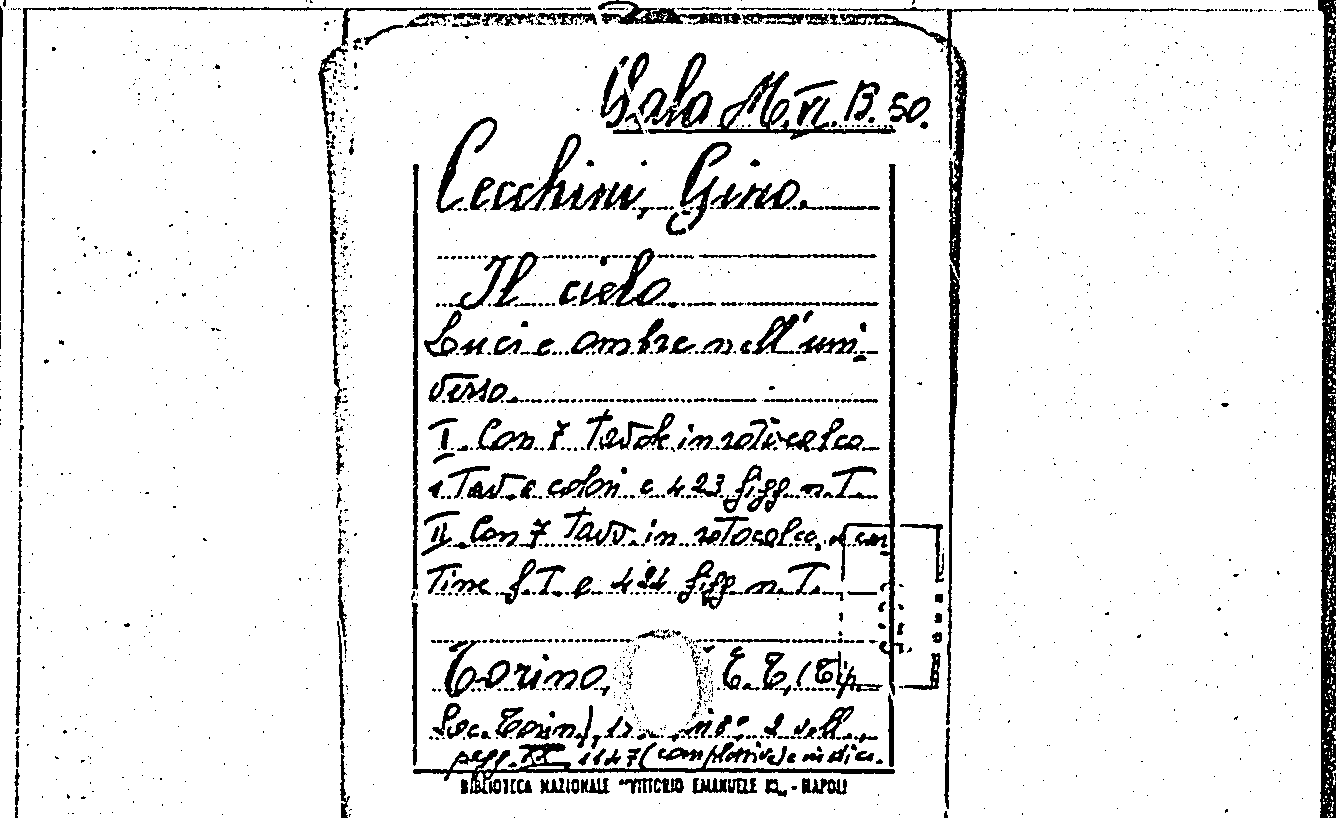 Sala M.VI.B.50.
Cecchini, Gino.
Il cielo.
Luci e ombre nell'uni-
verso.
I. Con 7 tavole in rotocalco
1 Tav. a colori e 423 figg. n. T.
II. Con 7 Tavv. in rotocalco, e car
tine f. T. e 424 figg n. T.
Torino, E.T. (Tip
Soc. Torin.), in 8°, 2 voll.,
pagg. XX, 1147 (complessive) e indice.
BIBLIOTECA NAZIONALE "VITTORIO EMANUELE III" - NAPOLI